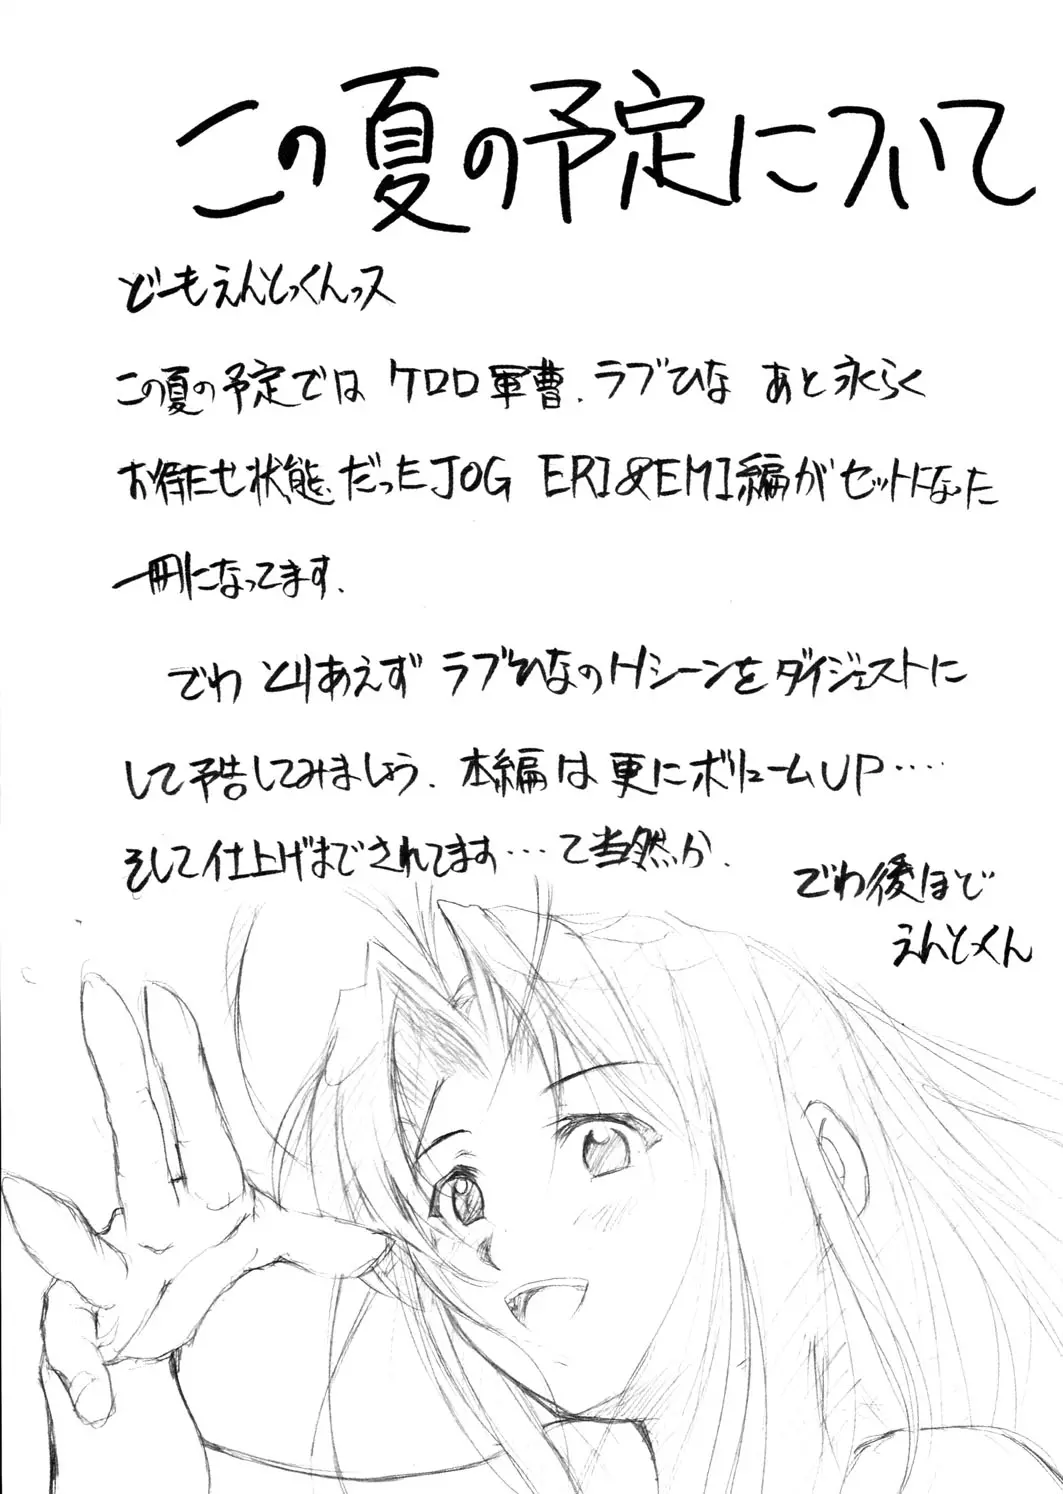 この夏の予定について
どーもえんとっくんっス
この夏の予定では ケロロ軍曹、ラブひな あと永らく
お待たせ状態だったJOG ERI&EMI編がセットになった
一冊になってます.
でわ とりあえず ラブひなのHシーンをダイジェストに
して予告してみましょう. 本編は更にボリュームUP・・・・・
そして仕上げまでされてます・・・て当然か.
でわ後ほど
えんとっくん